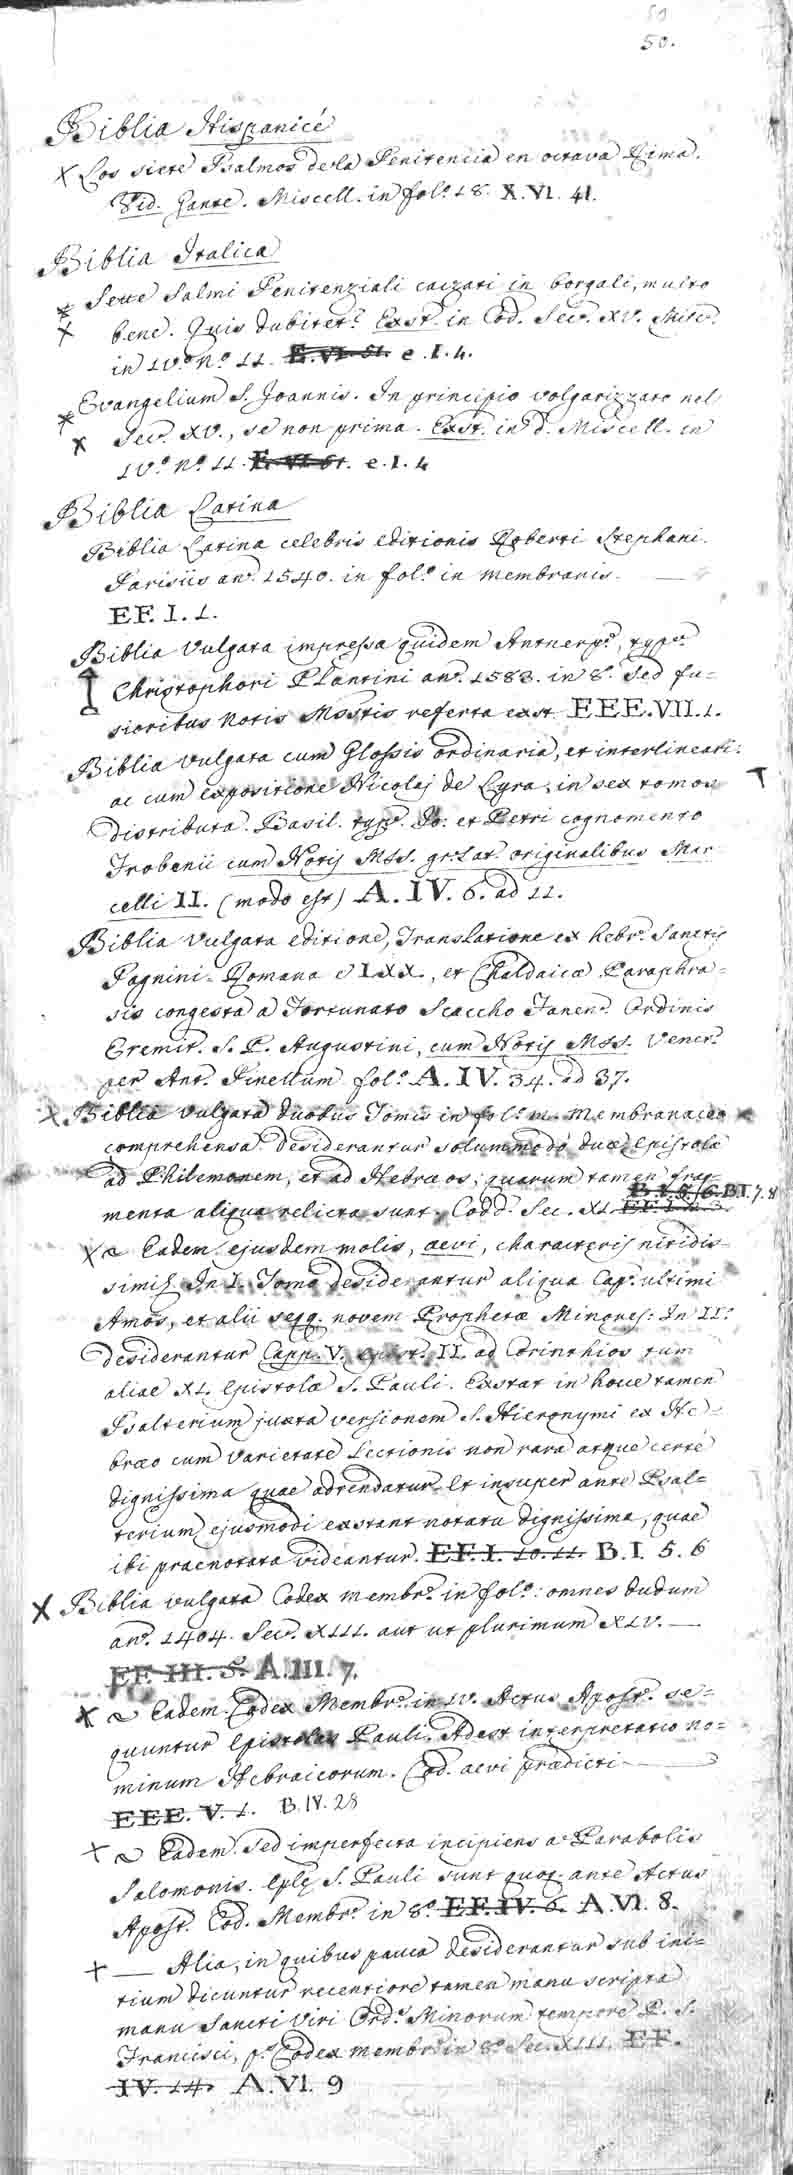 50.
Biblia Hispanicè
X Los siete Psalmos de la Penitencia en octava Rima.
Vid. Gante. Miscell. in fol.º 18. X.VI. 41.
Biblia Italica
Sette Salmi Penitenziali cazati in borgali, multo
X bene. Quis dubitet? Exst. in Cod. Sec. XV. Misc.
in 4.º N.º 11. E.VI. 51. e.I.4.
Evangelium S. Joannis. In principio volgarizzato nel
X Sec. XV., se non prima. Exst. in d. Miscell. in
4.º N.º 11. E.VI. 51. e.I.4
Biblia Latina
Biblia Latina celebris editionis Roberti Stephani.
Parisiis an. 1540. in fol.º in membranis. —
EF. I. 1.
Biblia Vulgata impressa quidem Antuerp.ᵉ, typ.
Christophori Plantini an. 1583. in 8.º Sed fu-
sioribus Notis Msstis referta exst. EEE.VII.1.
Biblia Vulgata cum Glossis ordinaria, et interlineari:
ac cum expositione Nicolaj de Lyra, in sex tomos
distributa. Basil. typ. Jo: et Petri cognomento
Frobenii cum Notis Mss. gr. Lat. originalibus Mar-
celli II. (modo est) A. IV. 6. ad 11.
Biblia Vulgata editione, Translatione ex hebr.º Sanctis
Pagnini. Romana e LXX., et Chaldaicæ Paraphra-
sis congesta a Fortunato Scaccho Fanen. Ordinis
Eremit. S. P. Augustini, cum Notis Mss. Venet.
per Ant. Pinellum fol.º A. IV. 34. ad 37.
X Biblia Vulgata duobus Tomis in fol.º m. membranaceo
comprehensa. Desiderantur solummodo duæ Epistolæ
ad Philemonem, et ad Hebræos; quarum tamen frag-
menta aliqua relicta sunt. Codd. Sec. XI. B.I.7.8
X ~ Eadem ejusdem molis, aevi, characteris nitidis-
simis. In I. Tomo desiderantur aliqua Cap. ultimi
Amos, et alii seqq. novem Prophetæ Minores: In II.
desiderantur Capp. V. epist. II. ad Corinthios tum
aliae XI. Epistolæ S. Pauli. Exstat in hoc tamen
Psalterium juxta versionem S. Hieronymi ex He-
bræo cum varietate Lectionis non rara atque certè
dignissima quae adtendatur. Et insuper ante Psal-
terium ejusmodi exstant notatu dignissima, quae
ibi praenotata videantur. EF. I. 10. 11. B. I. 5. 6
X Biblia Vulgata Codex membr. in fol.º: omnes dudum
an. 1404. Sec. XIII. aut ut plurimum XIV. —
EF. III. 5. A.III. 7.
X ~ Eadem. Codex Membr. in 4.º Actus Apost. se-
quuntur Epistolas Pauli. Adest interpretatio no-
minum Hebraicorum. Cod. aevi prædicti —
EEE. V. 1. B. IV. 28
X ~ Eadem. Sed imperfecta incipiens a Parabolis
Salomonis. Eplę S. Pauli sunt quoq. ante Actus
Apost. Cod. Membr. in 8.º EF. IV. 6. A. VI. 8.
+ — Alia, in quibus pauca desiderantur sub ini-
tium dicuntur recentiore tamen manu scripta
manu Sancti Viri Ord. Minorum tempore P. S.
Francisci, Codex membr. in 8.º Sec. XIII. EF.
IV. 14. A. VI. 9